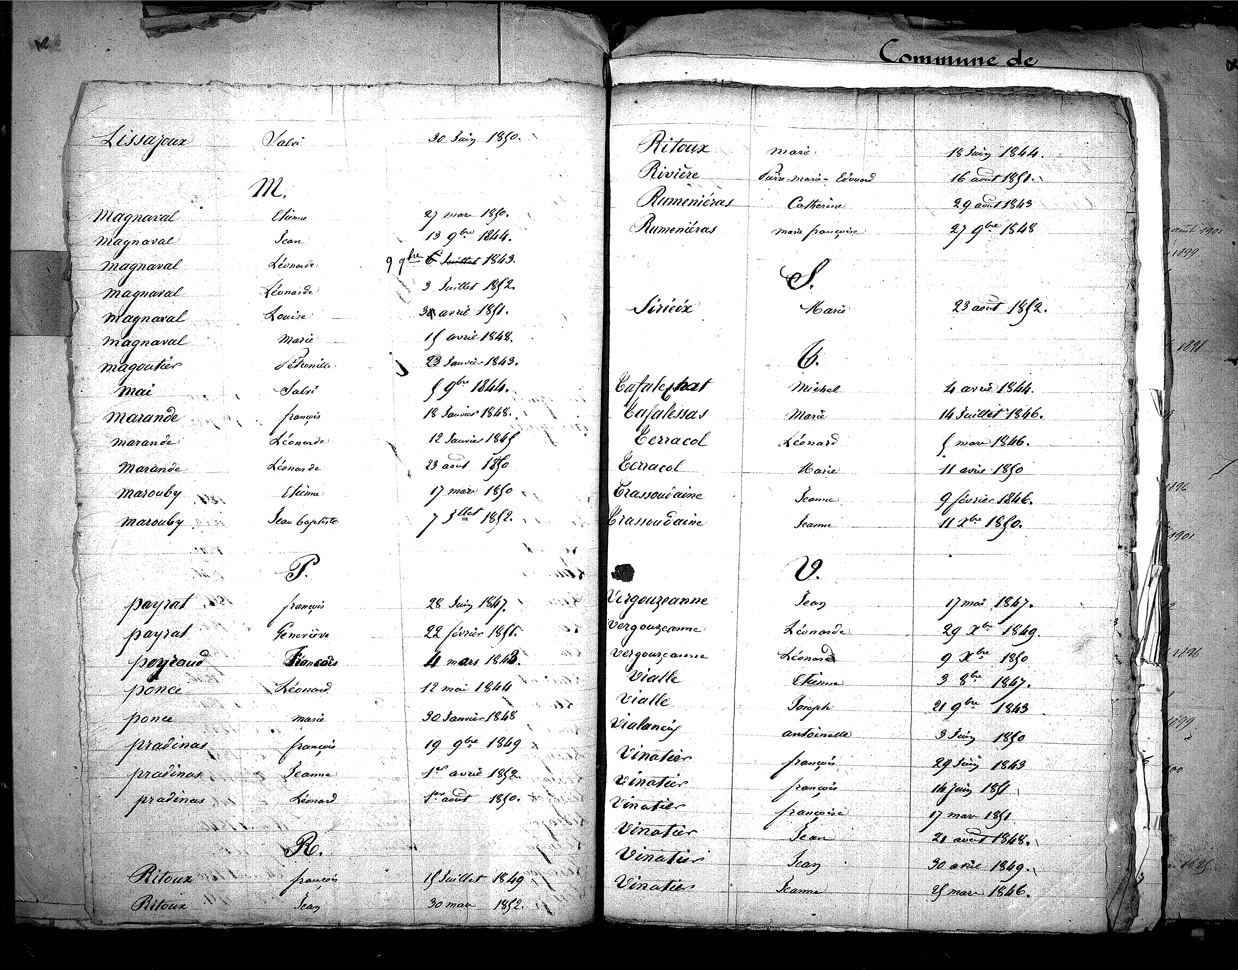 Commune de
Lissajoux Salvi 30 Juin 1850.
M.
Magnaval Etienne 27 mars 1850.
Magnaval Jean 13 9bre 1844.
Magnaval Léonarde 9 9bre 6 Juillet 1843.
Magnaval Léonarde 3 Juillet 1852.
Magnaval Louise 30 avril 1851.
Magnaval Marie 15 avril 1848.
Magoutier Pétronille 23 Janvier 1843.
Mai Salvi 5 9bre 1844.
Marande françois 18 Janvier 1848.
Marande Léonarde 12 Janvier 1845
Marande Léonarde 23 aout 1850
Marouby Etienne 17 mars 1850
Marouby Jean baptiste 7 Jllet 1852.
P.
Payrat françois 28 Juin 1847.
Payrat Geneviève 22 février 1851.
Peyraud François 4 mars 1843.
Ponce Léonard 12 mai 1844
Ponce marie 30 Janvier 1848
Pradinas françois 19 9bre 1849
Pradinas Jeanne 1er avril 1852
Pradinas Léonard 1er août 1850.
R.
Ritoux françois 15 Juillet 1849
Ritoux Jean 30 mars 1852.
Ritoux marie 18 Juin 1844.
Rivière Pierre-marie-Edouard 16 août 1851.
Rumeniéras Catherine 29 août 1843
Rumeniéras marie françoise 27 9bre 1848
S.
Sirieix Marie 23 août 1852.
T.
Tafaleshat Michel 4 avril 1844.
Tafalessas Marie 14 Juillet 1846.
Terracol Léonard 5 mars 1846.
Terracol Marie 11 avril 1850
Trassoudaine Jeanne 9 février 1846.
Trassoudaine Jeanne 11 Xbre 1850.
V.
Vergouzeanne Jean 17 mai 1847.
Vergouzeanne Léonarde 29 Xbre 1849.
Vergouzeanne Léonard 9 Xbre 1850
Vialle Etienne 3 8bre 1847.
Vialle Joseph 21 9bre 1843
Vialaneix antoinette 3 Juin 1850
Vinatier françois 29 Juin 1843
Vinatier françois 14 Juin 1851
Vinatier françoise 17 mars 1851
Vinatier Jean 21 août 1848.
Vinatier Jean 30 avril 1849.
Vinatier Jeanne 25 mars 1846.